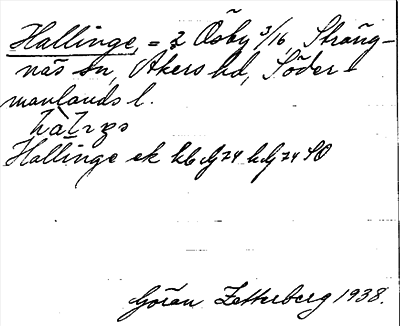 Hallinge, = 3 Ösby 3/16, Sträng-
näs sn, Åkers hd, Söder-
manlands l.
Hallinge ek kb G 74 h G 74 SO
Göran Zetterberg 1938.